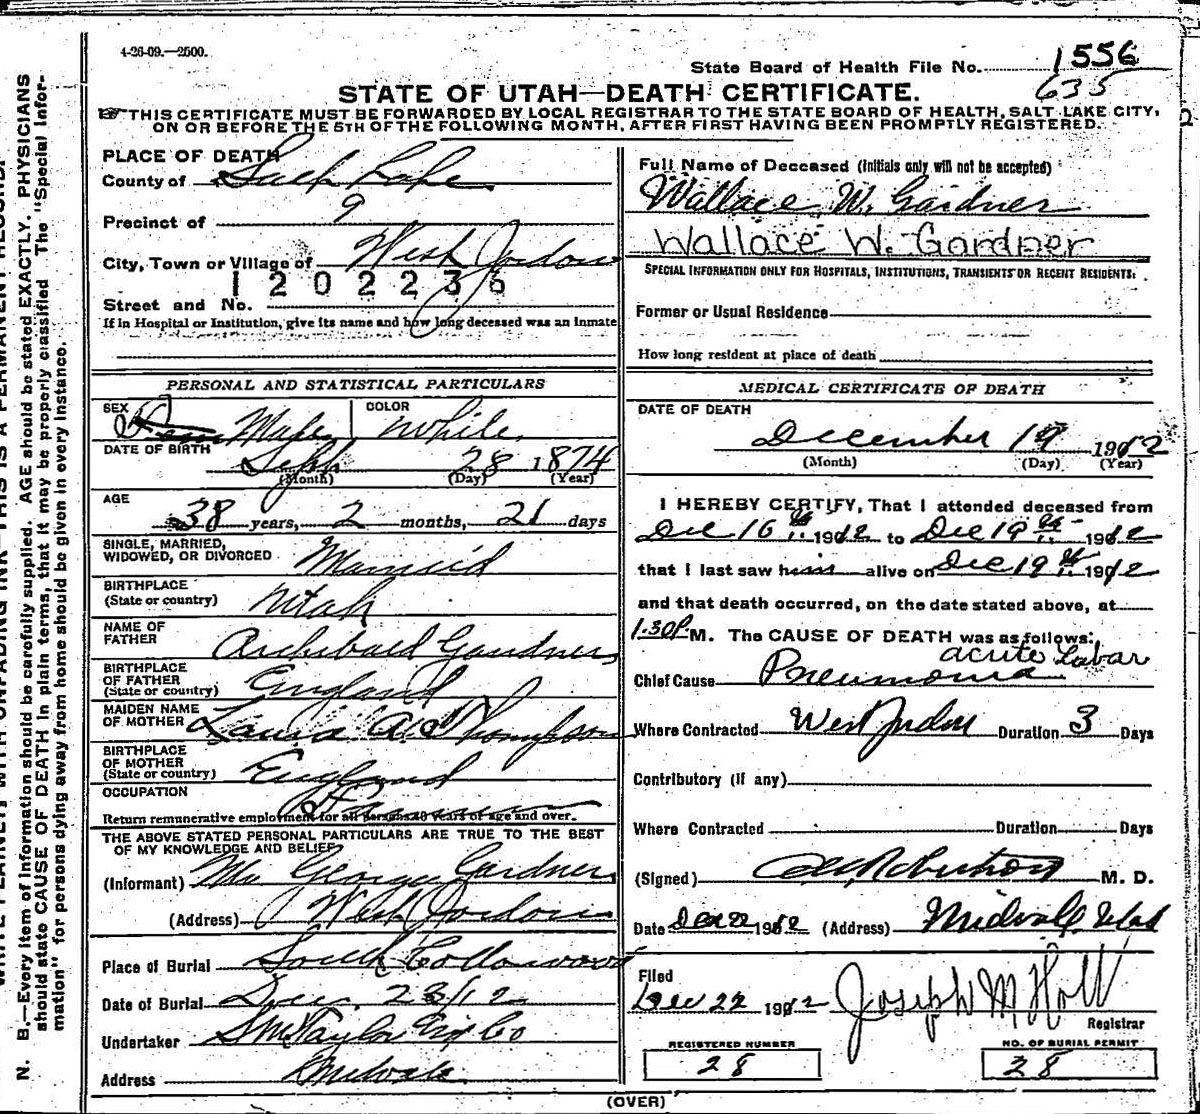 4-26-09.—2500.
State Board of Health File No. 1556
635
STATE OF UTAH—DEATH CERTIFICATE.
THIS CERTIFICATE MUST BE FORWARDED BY LOCAL REGISTRAR TO THE STATE BOARD OF HEALTH, SALT LAKE CITY,
ON OR BEFORE THE 5TH OF THE FOLLOWING MONTH, AFTER FIRST HAVING BEEN PROMPTLY REGISTERED.
PLACE OF DEATH
County of Salt Lake
Precinct of 9
City, Town or Village of West Jordan
1202236
Street and No.
If in Hospital or Institution, give its name and how long deceased was an inmate
PERSONAL AND STATISTICAL PARTICULARS
SEX Male COLOR White
DATE OF BIRTH Sept 28 1874
(Month) (Day) (Year)
AGE
38 years, 2 months, 21 days
SINGLE, MARRIED,
WIDOWED, OR DIVORCED Married
BIRTHPLACE
(State or country) Utah
NAME OF
FATHER Archibald Gardner
BIRTHPLACE
OF FATHER
(State or country) England
MAIDEN NAME
OF MOTHER Laura A. Thompson
BIRTHPLACE
OF MOTHER
(State or country) England
OCCUPATION Farmer
Return remunerative employment for all persons 10 years of age and over.
THE ABOVE STATED PERSONAL PARTICULARS ARE TRUE TO THE BEST
OF MY KNOWLEDGE AND BELIEF
(Informant) George Gardner
(Address) West Jordan
Place of Burial South Cottonwood
Date of Burial Dec. 23/12
Undertaker Taylor Co
Address Midvale
Full Name of Deceased (Initials only will not be accepted)
Wallace W. Gardner
Wallace W. Gardner
SPECIAL INFORMATION ONLY FOR HOSPITALS, INSTITUTIONS, TRANSIENTS OR RECENT RESIDENTS:
Former or Usual Residence
How long resident at place of death
MEDICAL CERTIFICATE OF DEATH
DATE OF DEATH
December 19 1912
(Month) (Day) (Year)
I HEREBY CERTIFY, That I attended deceased from
Dec 16th 1912 to Dec 19th 1912
that I last saw him alive on Dec 19th 1912
and that death occurred, on the date stated above, at
1.30P. M. The CAUSE OF DEATH was as follows:
acute Lobar
Chief Cause Pneumonia
Where Contracted West Jordan Duration 3 Days
Contributory (if any)
Where Contracted Duration Days
(Signed) Robertson M. D.
Date Dec 22 1912 (Address) Midvale Utah
Filed
Dec 22 1912 Joseph M Holt
Registrar
REGISTERED NUMBER
28
NO. OF BURIAL PERMIT
28
(OVER)
N. B.—Every item of information should be carefully supplied. AGE should be stated EXACTLY. PHYSICIANS
should state CAUSE OF DEATH in plain terms, that it may be properly classified. The "Special Infor-
mation" for persons dying away from home should be given in every instance.